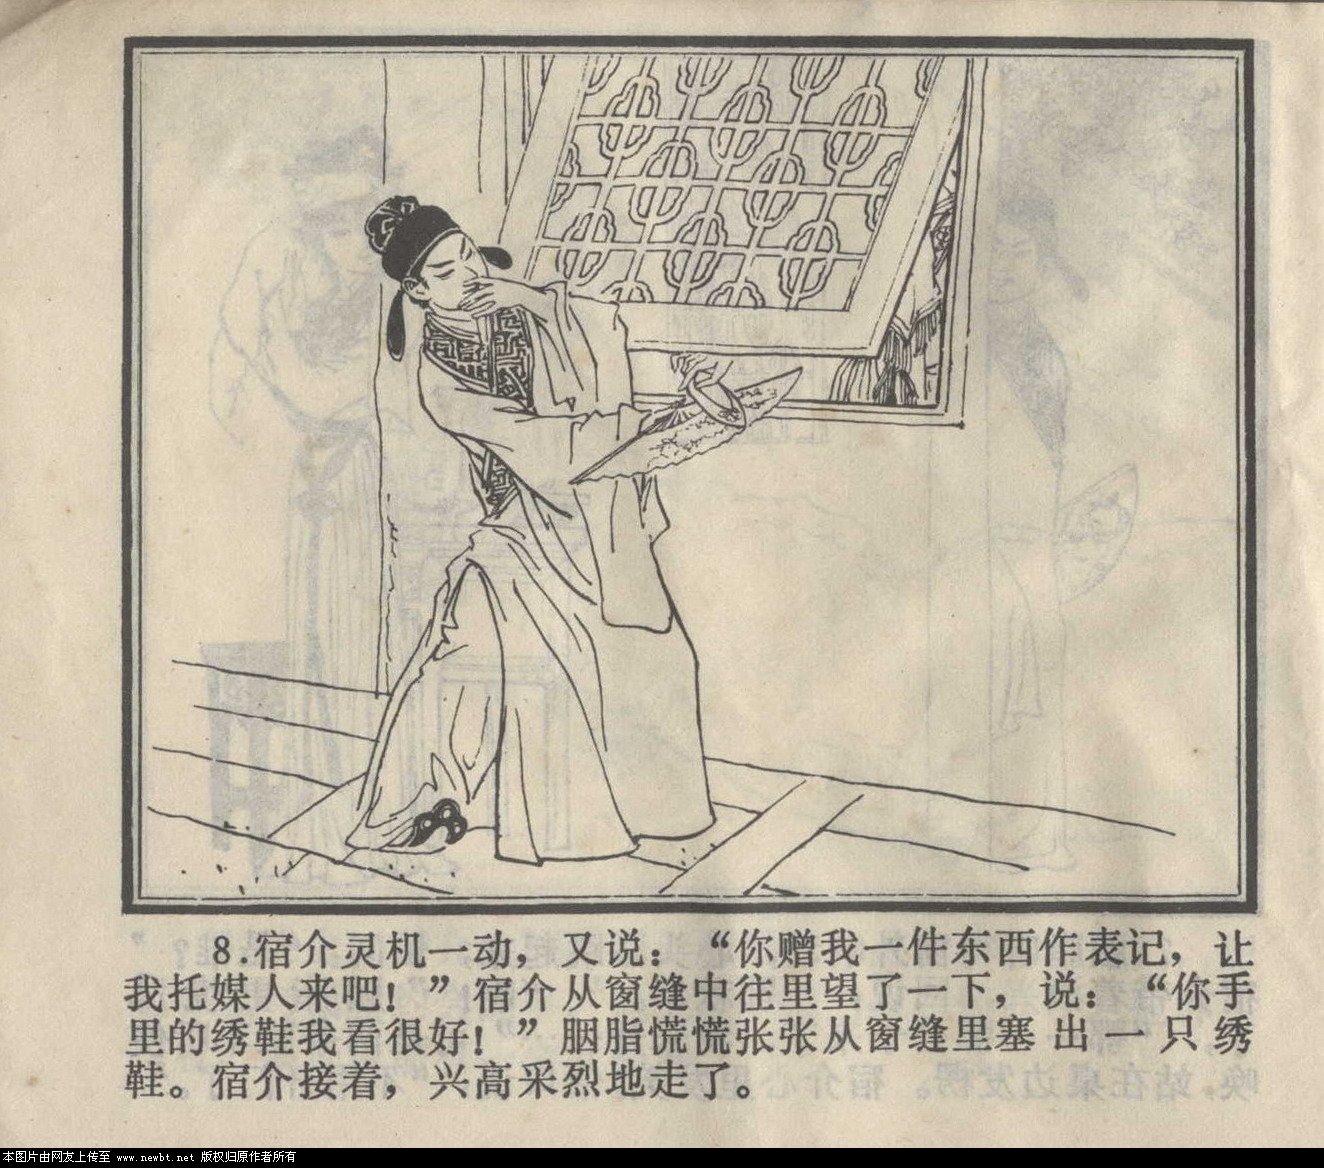 8.宿介灵机一动，又说：“你赠我一件东西作表记，让
我托媒人来吧！”宿介从窗缝中往里望了一下，说：“你手
里的绣鞋我看很好！”胭脂慌慌张张从窗缝里塞出一只绣
鞋。宿介接着，兴高采烈地走了。
本图片由网友上传至 www.newbt.net 版权归原作者所有